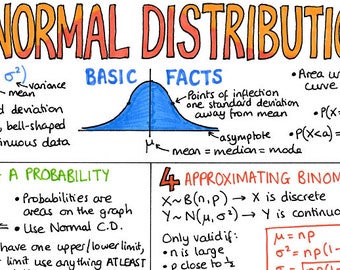 NORMAL DISTRIBUTIO
BASIC FACTS
σ²)
variance
mean
d deviation
, bell-shaped
nuous data
Points of inflection
one standard deviation
away from mean
asymptote
μ
mean = median = mode
• Area u
curve
• P(X=
• P(X<a)=
A PROBABILITY
• Probabilities are
areas on the graph
• Use Normal C.D.
have one upper/lower limit,
limit use anything AT LEAST
4 APPROXIMATING BINOM
X~B(n,p) → X is discrete
Y~N(μ,σ²) → Y is continuo
Only valid if:
• n is large
• p close to ½
μ = np
σ² = np(1-